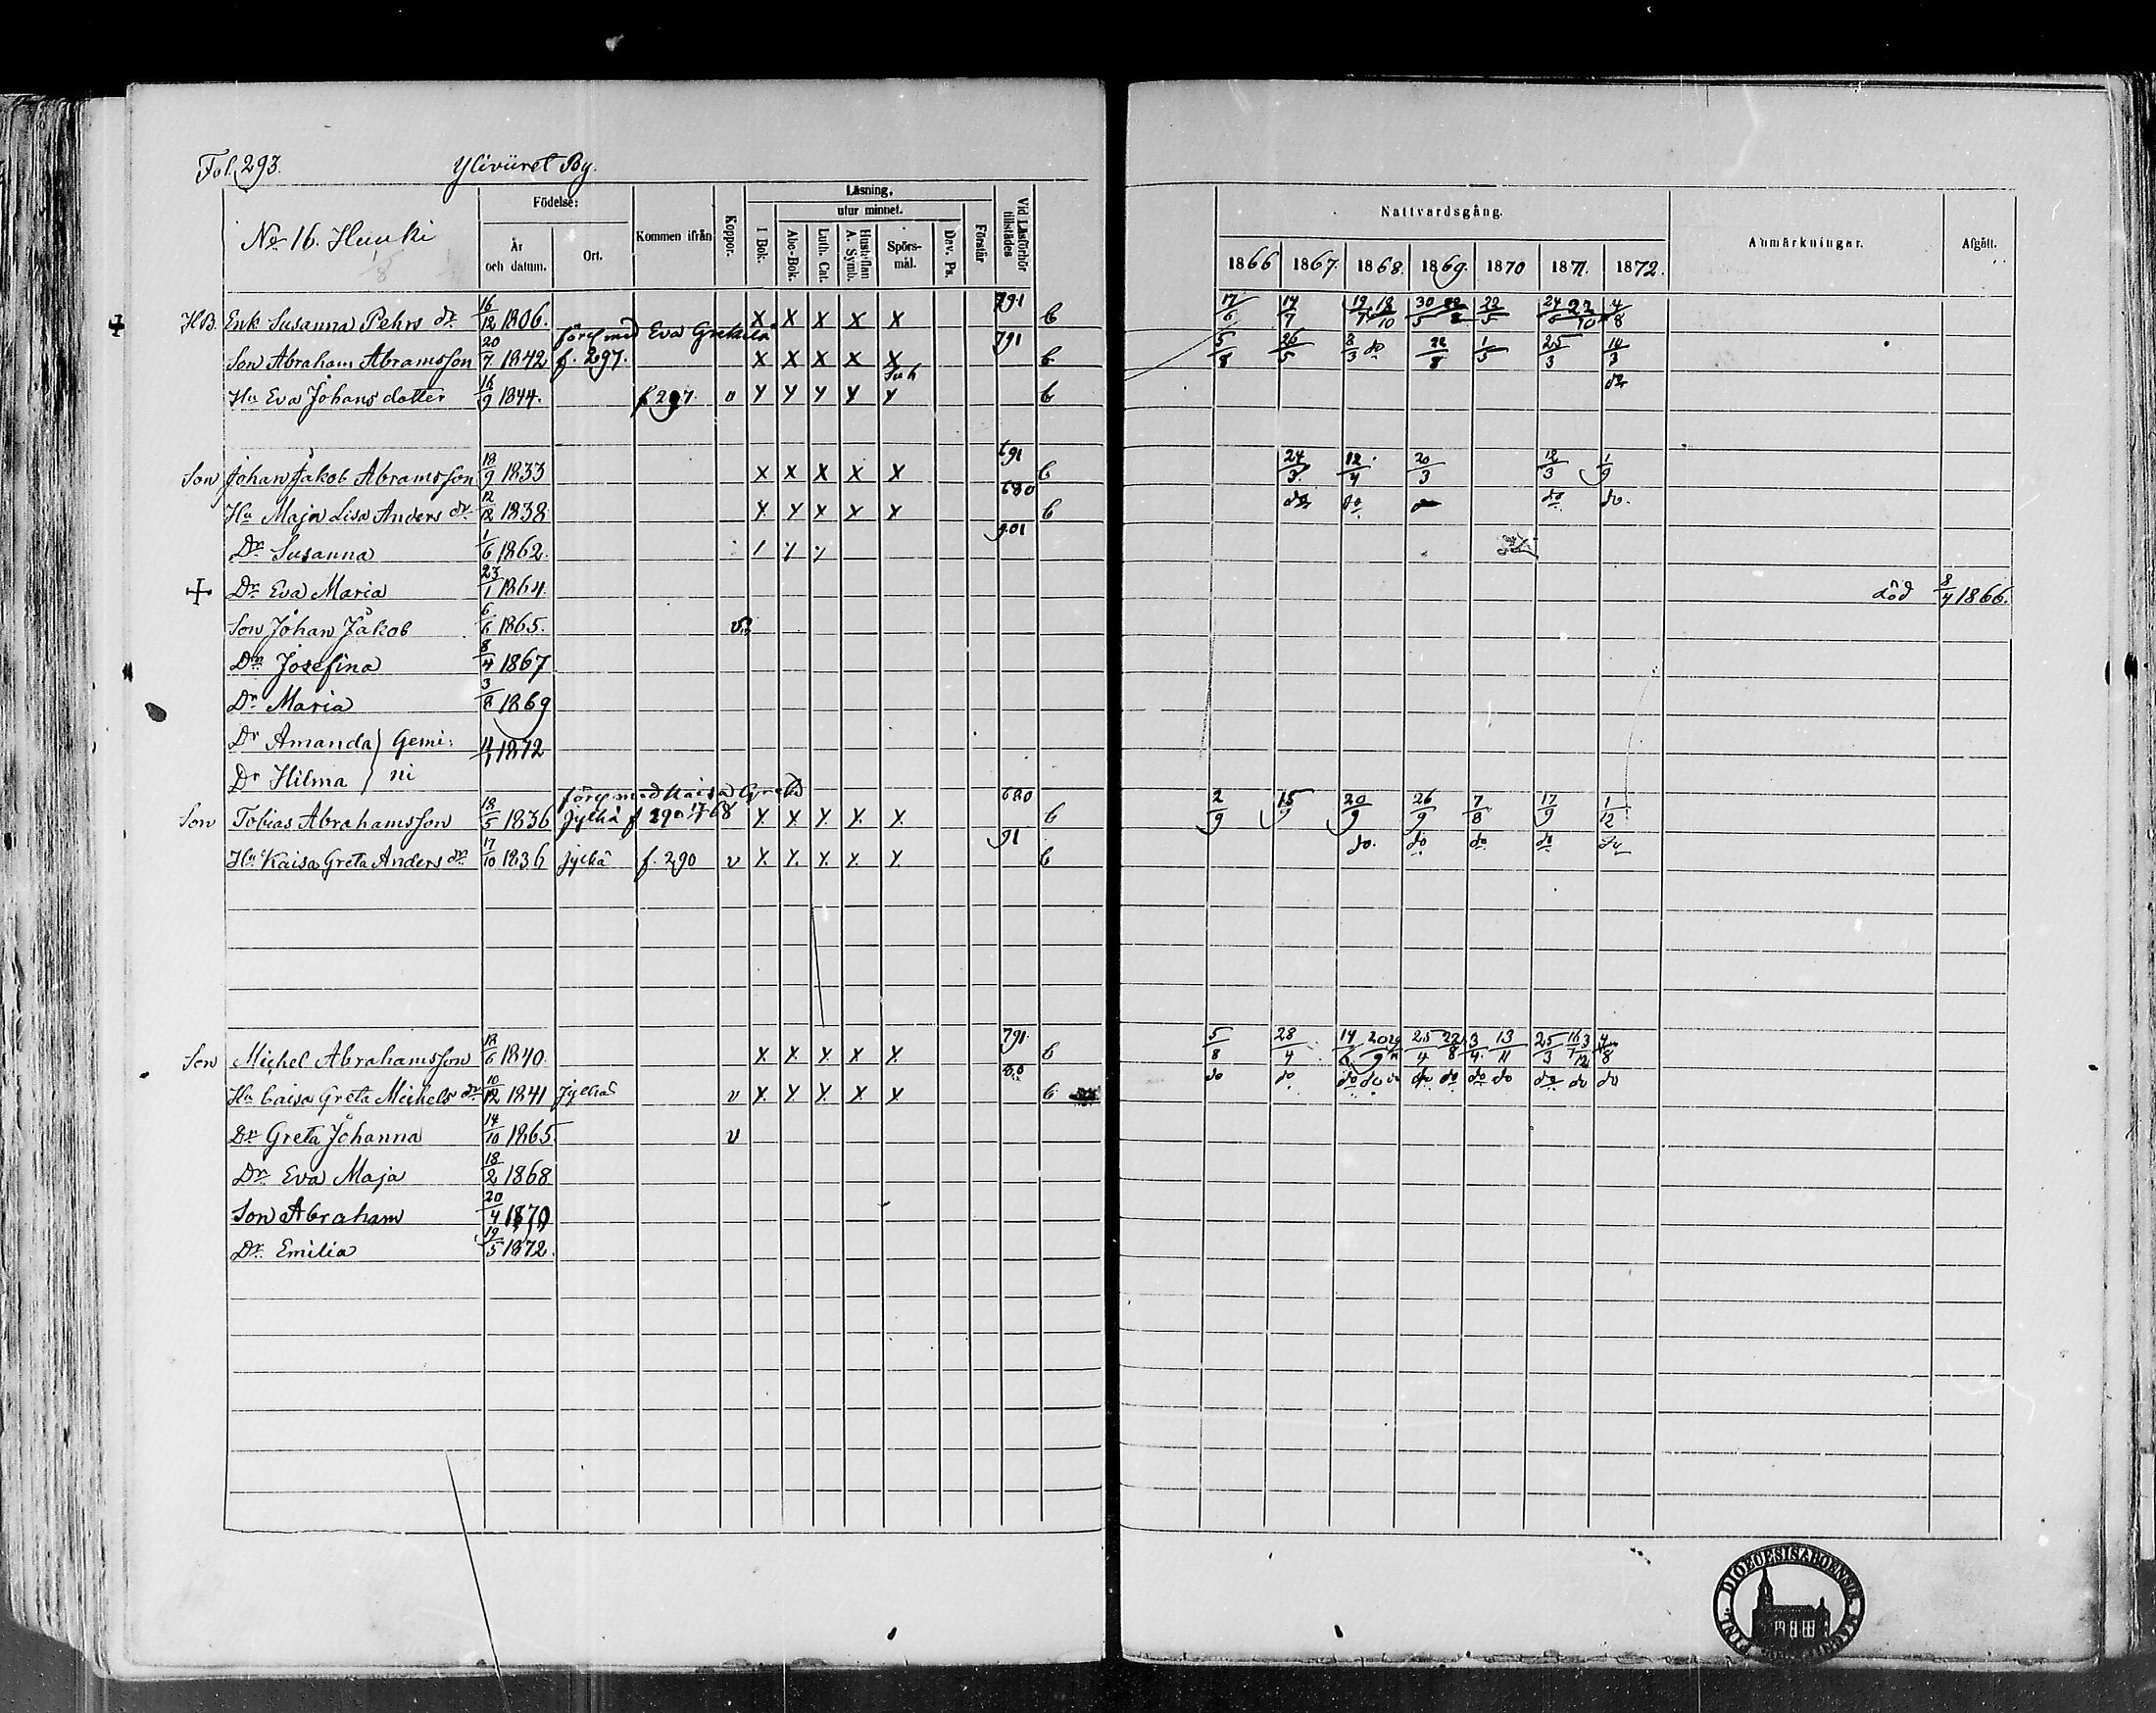 Fol. 293. Ylivüret By.
No 16. Huuki
Födelse: År och datum. Ort. Kommen ifrån Koppor. Läsning, I Bok. utur minnet. Abc-Bok. Luth. Cat. Hustaflan A. Symb. Spörs-mål. Dav. Ps. Förstår Vid Läsförhör tillstädes
Nattvardsgång. 1866 1867. 1868. 1869. 1870 1871. 1872. Anmärkningar. Afgått.
HB. Enk Susanna Pehrs dr 16/12 1806. X X X X X 791 b 17/6 14/7
förl med Eva Greta
Son Abraham Abramsson 20/7 1842 f. 297. X X X X X 791 b 5/8 26/5 8/3 do 22/8 1/5 25/3 14/3
Hu Eva Johans dotter 16/9 1844. f 297. v Y Y Y Y Y b do
Son Johan Jakob Abramsson 18/9 1833 X X X X X 691 b 24/3 12/4 20/3 12/3 1/9
Hu Maja Lisa Anders dr 12/12 1838 X Y X X X 680 b do do do do
Dr Susanna 1/6 1862. 901
Dr Eva Maria 23/1 1864. död 8/4 1866.
Son Johan Jakob 6/6 1865. v
Dr Josefina 8/4 1867
Dr Maria 3/8 1869
Dr Amanda } Gemi: 1872
Dr Hilma } ni
förl med Kaisa Greta
Son Tobias Abrahamsson 18/5 1836 Jylkä f 290 X X X X X 680 b 2/9 15/9 20/9 26/9 7/8 17/9 1/12
Hu Kaisa Greta Anders dr 17/10 1836 jylkä f. 290 v X X X X X 91 b do. do do do do
Son Michel Abrahamsson 18/6 1840. X X X X X 791 b 5/8 28/4 14/6 25/4 22/8 3/4 13/11 25/3 4/8
Hu Caisa Greta Michels dr 10/12 1841 Jylkä v X X X X X b do do do do do do do do do do do
Dr Greta Johanna 14/10 1865 v
Dr Eva Maja 18/2 1868
Son Abraham 20/4 1870
Dr Emilia 19/5 1872.